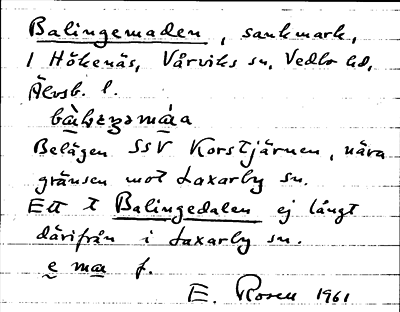 Balingemaden, sankmark,
i Hökenäs, Vårviks sn, Vedbo hd,
Älvsb. l.
Belägen SSV Korstjärnen, nära
gränsen mot Laxarby sn.
Ett t Balingedalen ej långt
därifrån i Laxarby sn.
e ma f.
E. Rosen 1961